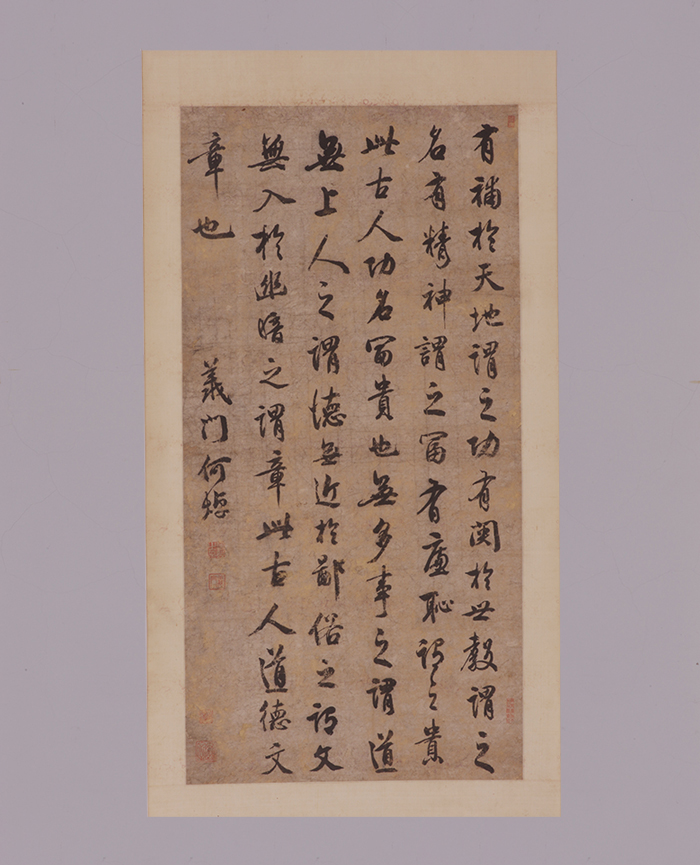 有補於天地謂之功有関於世教謂之
名有精神謂之冨有廉恥謂之貴
此古人功名冨貴也無多事之謂道
無上人之謂德無近於鄙俗之謂文
無入於幽暗之謂章此古人道德文
章也
義門何焯